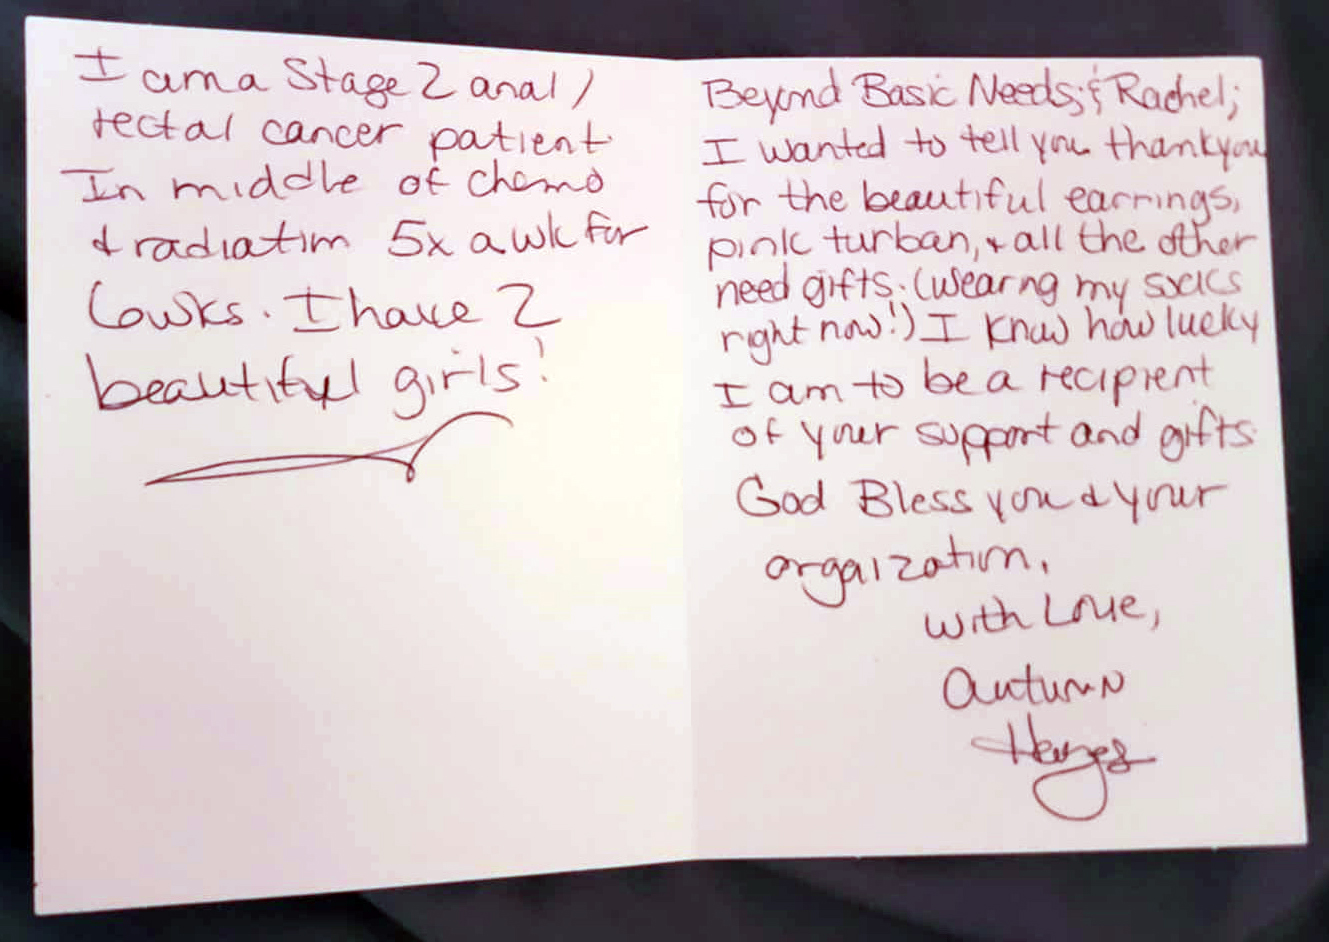 I am a Stage 2 anal /
rectal cancer patient.
In middle of chemo
& radiation 5x a wk for
6wks. I have 2
beautiful girls!
Beyond Basic Needs; & Rachel;
I wanted to tell you thank you
for the beautiful earrings,
pink turban, & all the other
need gifts. (wearng my socks
right now!) I know how lucky
I am to be a recipient
of your support and gifts.
God Bless you & your
orgaization.
with Love,
Autumn